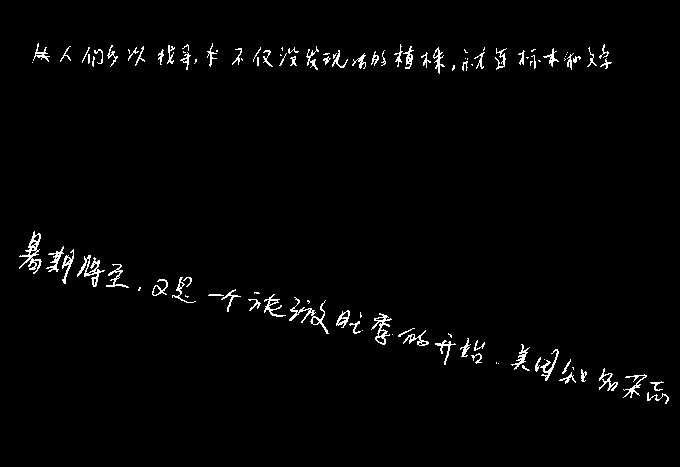 人们多以找寻,不仅没发现活的植株,就连标本和文字
暑期将至,又是一个旅游旺季的开始.美国知名杂志